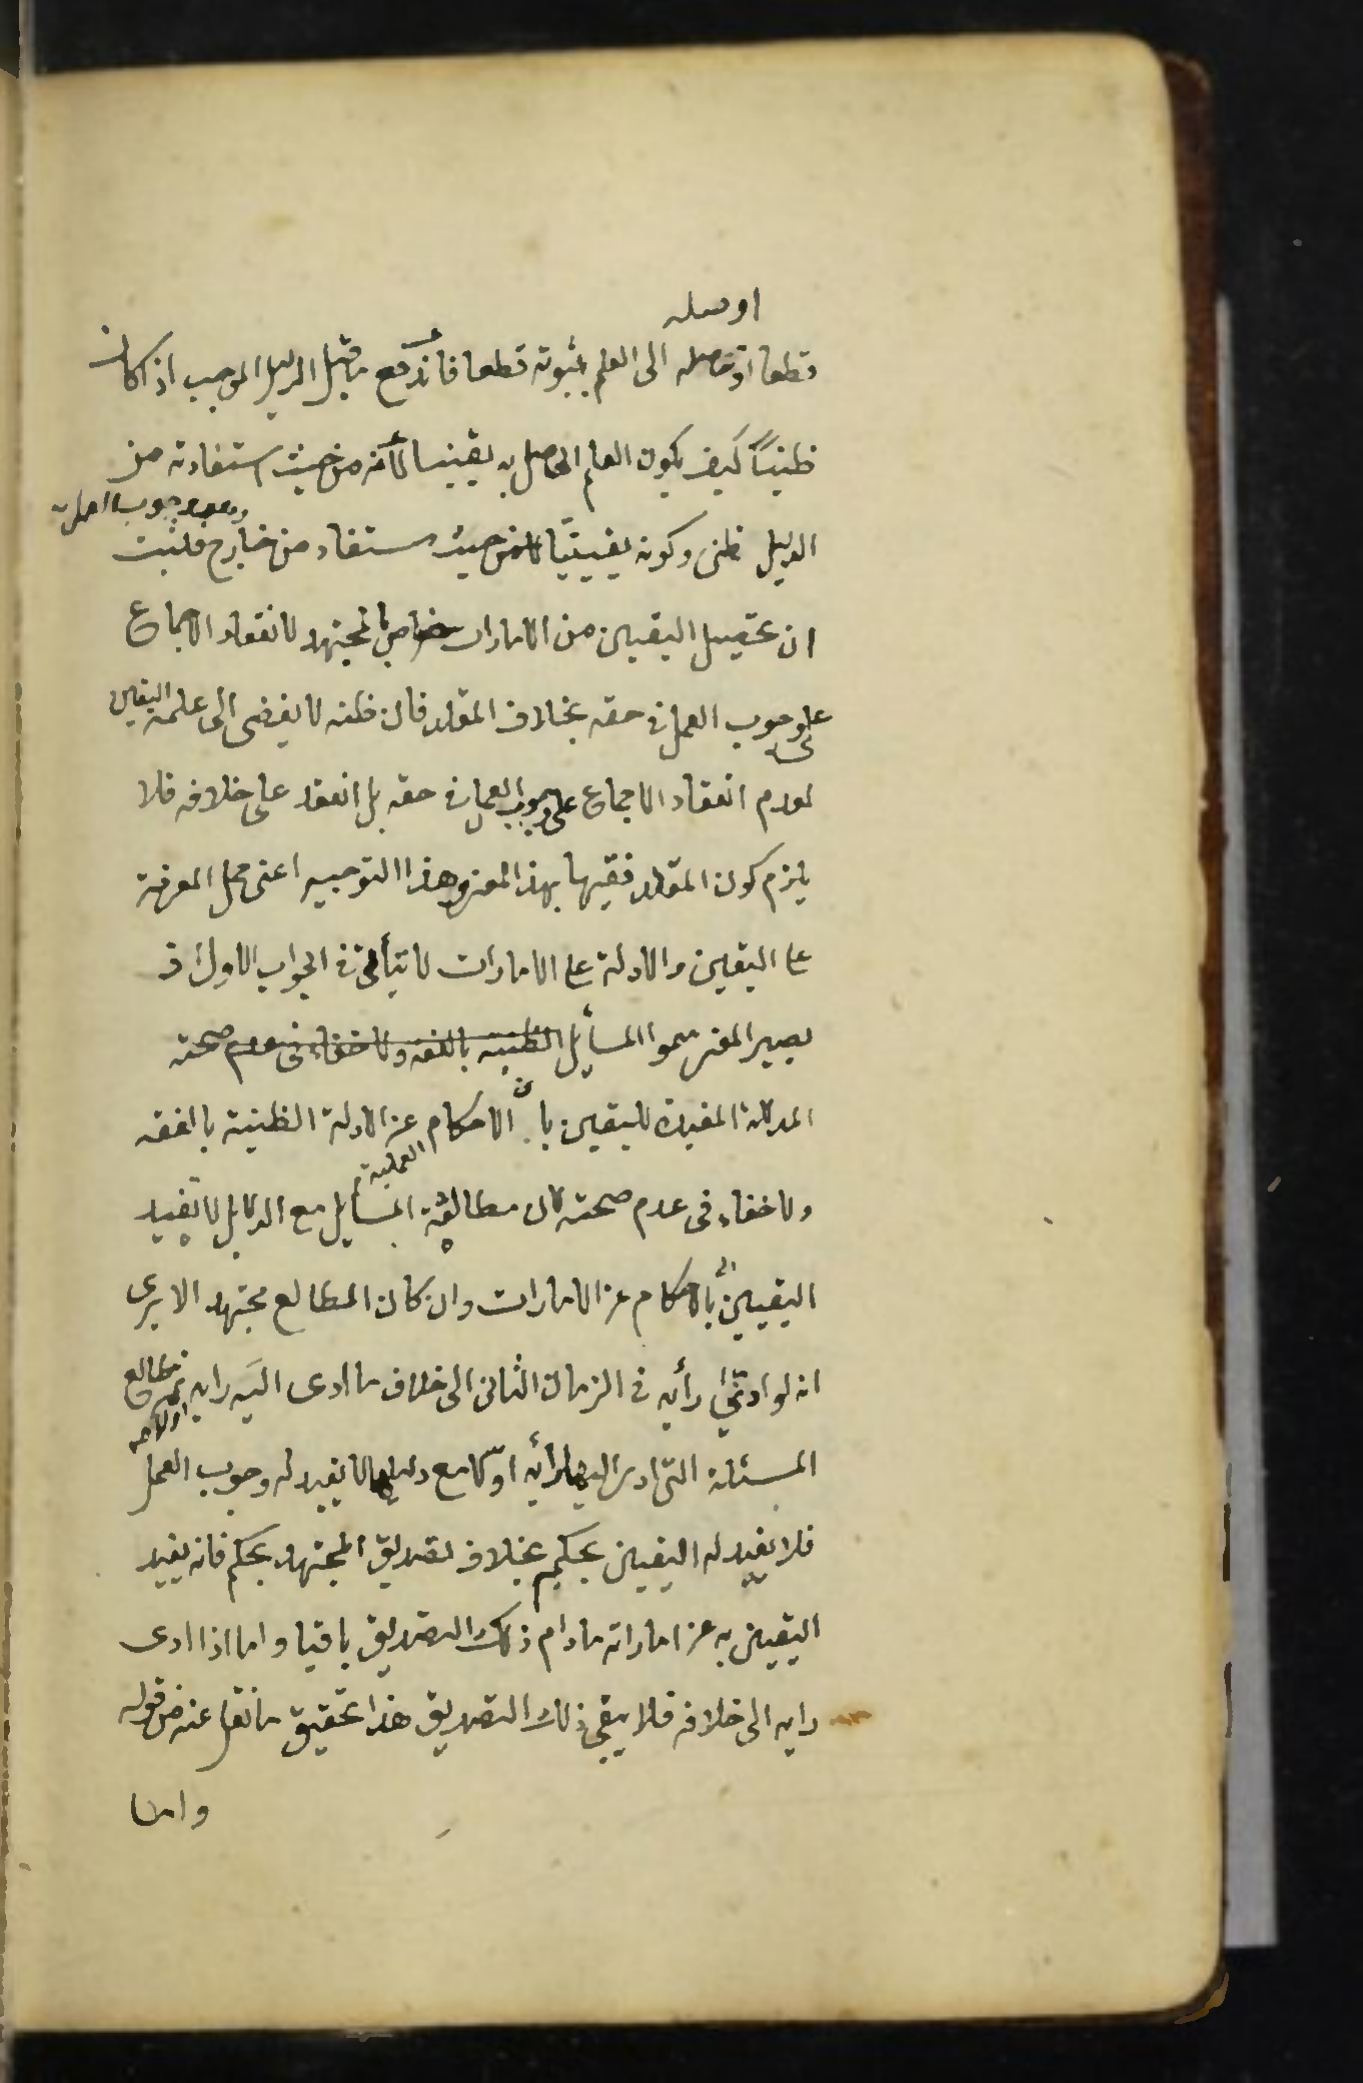 اوصله
قطعا اوتحاصله الى العلم بثبوته قطعا فاندفع ما قيل الدليل الموجب اذا كان
ظنيًا كيف يكون العلم الحاصل به يقينيا لأنه من حيث استفادته من
الدليل ظنى وكونه يقينيًّا من حيث مستفاد من خارج فثبت
وهو وجوب العمل به
ان تحصيل اليقين من الامارات خواص المجتهد لانعقاد الاجماع
على وجوب العمل فى حقه بخلاف المقلد فان ظنه لا يفضى الى علمه اليقين
لعدم انعقاد الاجماع على وجوب العمل فى حقه بل انعقد على خلافه فلا
يلزم كون المقلد فقيها بهذا المعنى وهذا التوجيه اعنى حمل المعرفة
على اليقين والادلة على الامارات لا يتأتى فى الجواب الاول اذ
يصير المعنى سموا المسأيل الظنية بالفقه ولا خفاء فى عدم صحته
المدللة المفيدة لليقين بان الاحكام عن الادلة الظنية بالفقه
العملية
ولا خفاء فى عدم صحته لان مطالعة المسأيل مع الدلايل لا تفيد
اليقين بالاحكام عن الامارات وان كان المطالع مجتهد الا يرى
انه لو ادى رأيه فى الزمان الثانى الى خلاف ما ادى اليه رايه ثم طالع
اولا
المسئلة التى ادى اليها رأيه اوّلا مع دليلها لا يفيد له وجوب العمل
فلا يفيد له اليقين بحكم بخلاف تصديق المجتهد بحكم فانه يفيد
اليقين به عن اماراته مادام ذلك التصديق باقيا واما اذا ادى
رايه الى خلافه فلا يبقى ذلك التصديق هذا تحقيق ما نقل عنه من قوله
واما